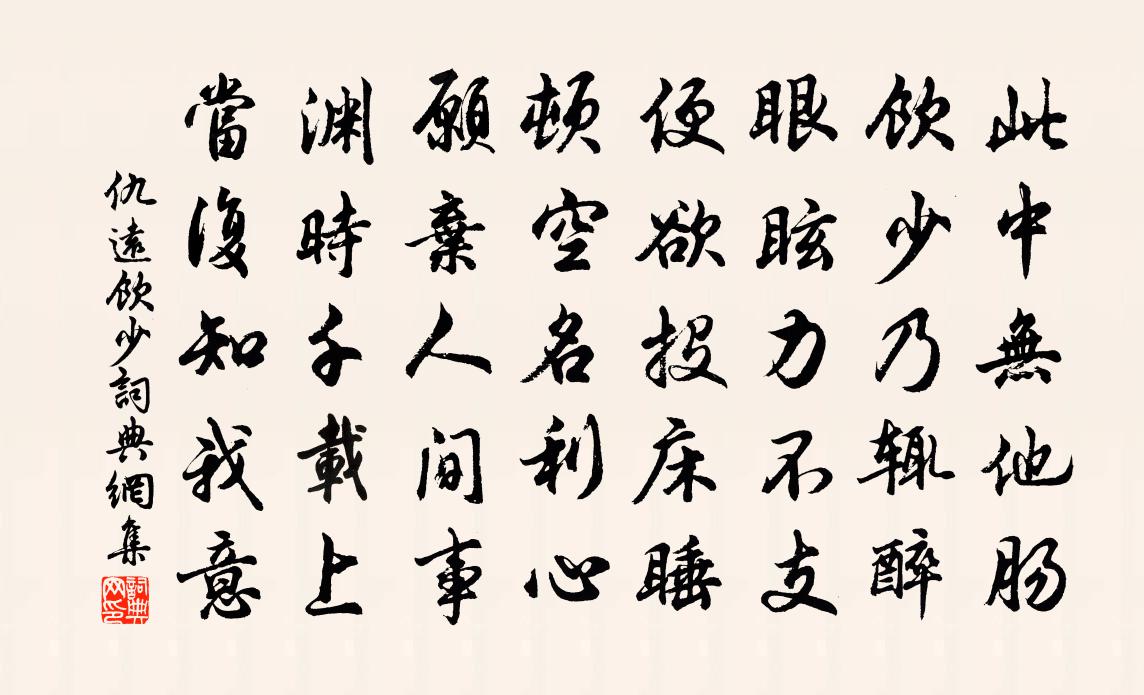 此中無他腸
飲少乃輒醉
眼眩力不支
便欲投床睡
頓空名利心
願棄人間事
淵時千載上
當復知我意
仇遠飲少詞典網集
詞典網印